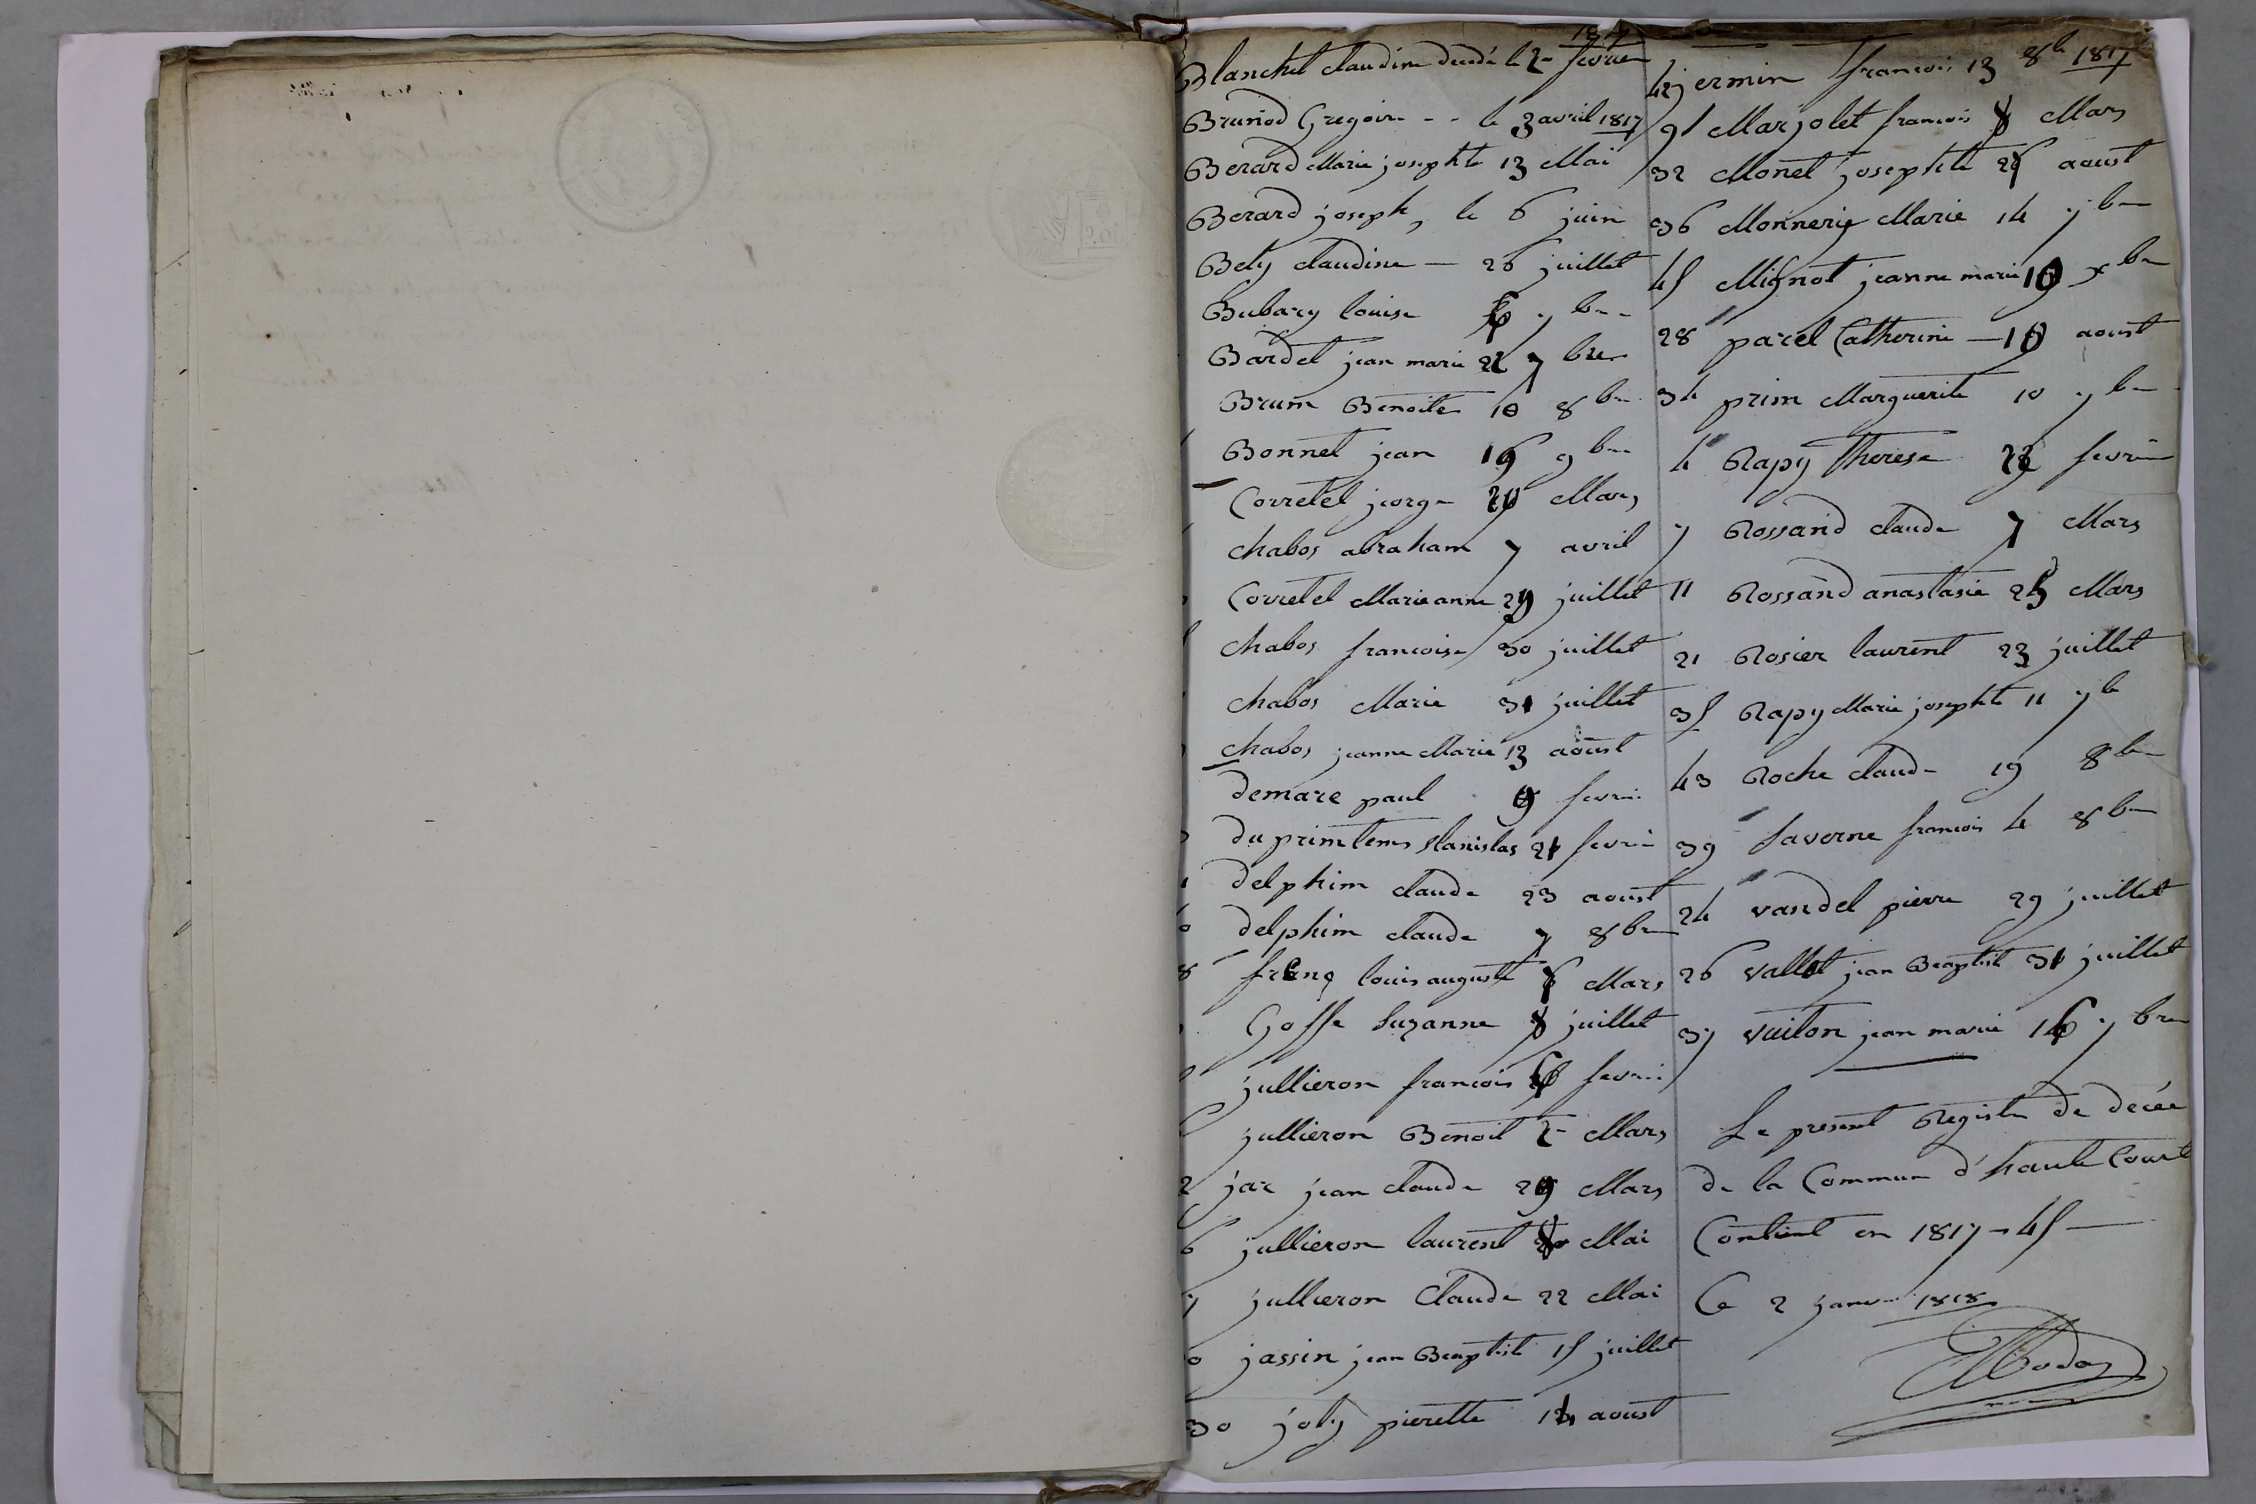 1817
Blanchet claudine decedé le 2 fevrier
Bruniod Gregoire - - le 3 avril 1817
Berard Marie josephte 13 Mai
Berard joseph, le 6 juin
Bety claudine — 26 juillet
Bubary louise 7 bre
Bardet jean marie 22 7 bre
Brun Benoite 10 8 bre
Bonnet jean 16 9 bre
Corretel jorge 20 Mars
chabos abraham 7 avril
Corretel Marieanne 29 juillet
chabos francoise 30 juillet
chabos Marie 31 juillet
chabos jeanne Marie 13 aoust
demare paul 9 fevrier
duprintems stanislas 21 fevrier
delphin claude 23 aoust
delphin claude 7 8 bre
8 louis auguste Mars
Goffe Suzanne 8 juillet
jullieron francois fevrier
jullieron Benoit 2 Mars
2 jar jean claude 29 Mars
6 jullieron laurent Mai
7 jullieron Claude 22 Mai
0 jassin jean Beaptiste 15 juillet
30 joly pierette aoust
42 jermin francois 13 8 bre 1817
9 Marjolet francois 8 Mars
32 Monet josephte aoust
36 Monnery Marie 14 7 bre
45 Mignot jeanne marie
28 parel Catherine — aoust
34 prim Marguerite 10 7 bre
4 Rapy Therese fevrier
7 Rossand claude 7 Mars
11 Rossand anastasie 25 Mars
21 Rosier laurent 23 juillet
35 Rapy Marie josephte 11 7 bre
43 Roche claude 19 8 bre
39 Saverne francois 4 8 bre
24 vandel pierre 29 juillet
26 vallet jean Beaptiste 31 juillet
37 vuiton jean marie 16 7 bre
Le present Registre de decée
de la Commune d'haute Court
Contient en 1817 - 45 —
Ce 2 janvier 1818